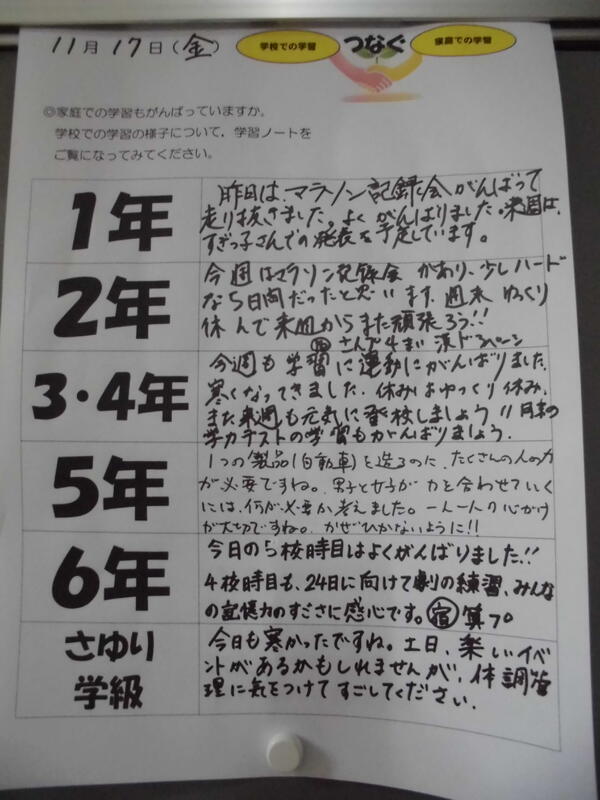 11月17日(金)
学校での学習
つなぐ
家庭での学習
◎家庭での学習もがんばっていますか。
学校での学習の様子について、学習ノートを
ご覧になってみてください。
1年
昨日は、マラソン記録会、がんばって
走り抜きました。よくがんばりました。来週は、
すぎっ子さんでの発表を予定しています。
2年
今週はマラソン記録会があり、少しハード
な5日間だったと思います。週末ゆっくり
休んで来週からまた頑張ろう!!
さんプ4まい 漢ド
3・4年
今週も学習に運動にがんばりました。
寒くなってきました。休みはゆっくり休み、
また来週も元気に登校しましょう!! 月末の
学力テストの学習もがんばりましょう。
5年
1つの製品(自転車)を造るのに、たくさんの人の力
が必要ですね。男子と女子が力を合わせていく
には、何が必要か考えました。一人一人の心がけ
が大切ですね。かぜひかないように!!
6年
今日の5校時目はよくがんばりました!!
4校時目も、24日に向けて劇の練習、みんな
の記憶力のすごさに感心です。宿 算プ
さゆり
学級
今日も寒かったですね。土日、楽しいイベ
ントがあるかもしれませんが、体調管
理に気をつけてすごしてください。